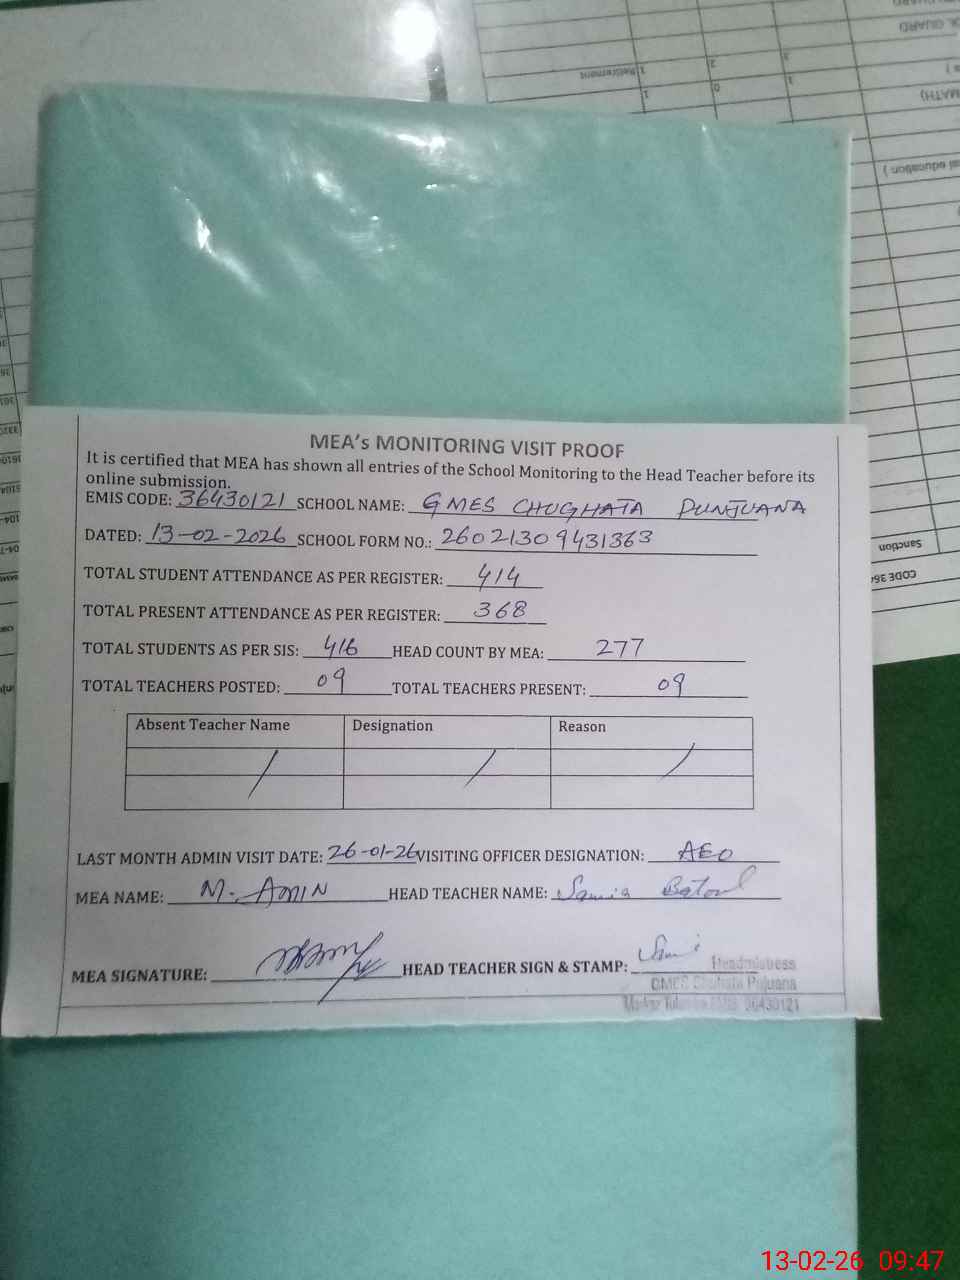 MEA's MONITORING VISIT PROOF
It is certified that MEA has shown all entries of the School Monitoring to the Head Teacher before its
online submission.
EMIS CODE: 36430121 SCHOOL NAME: GMES CHUGHATA PUNJUANA
DATED: 13-02-2026 SCHOOL FORM NO.: 26021309431363
TOTAL STUDENT ATTENDANCE AS PER REGISTER: 414
TOTAL PRESENT ATTENDANCE AS PER REGISTER: 368
TOTAL STUDENTS AS PER SIS: 416 HEAD COUNT BY MEA: 277
TOTAL TEACHERS POSTED: 09 TOTAL TEACHERS PRESENT: 09
Absent Teacher Name Designation Reason
LAST MONTH ADMIN VISIT DATE: 26-01-26 VISITING OFFICER DESIGNATION: AEO
MEA NAME: M. AMIN HEAD TEACHER NAME: Samia Batool
MEA SIGNATURE: HEAD TEACHER SIGN & STAMP:
Headmistress
GMES Pujuana
36430121
Retirement
Sanction
13-02-26 09:47